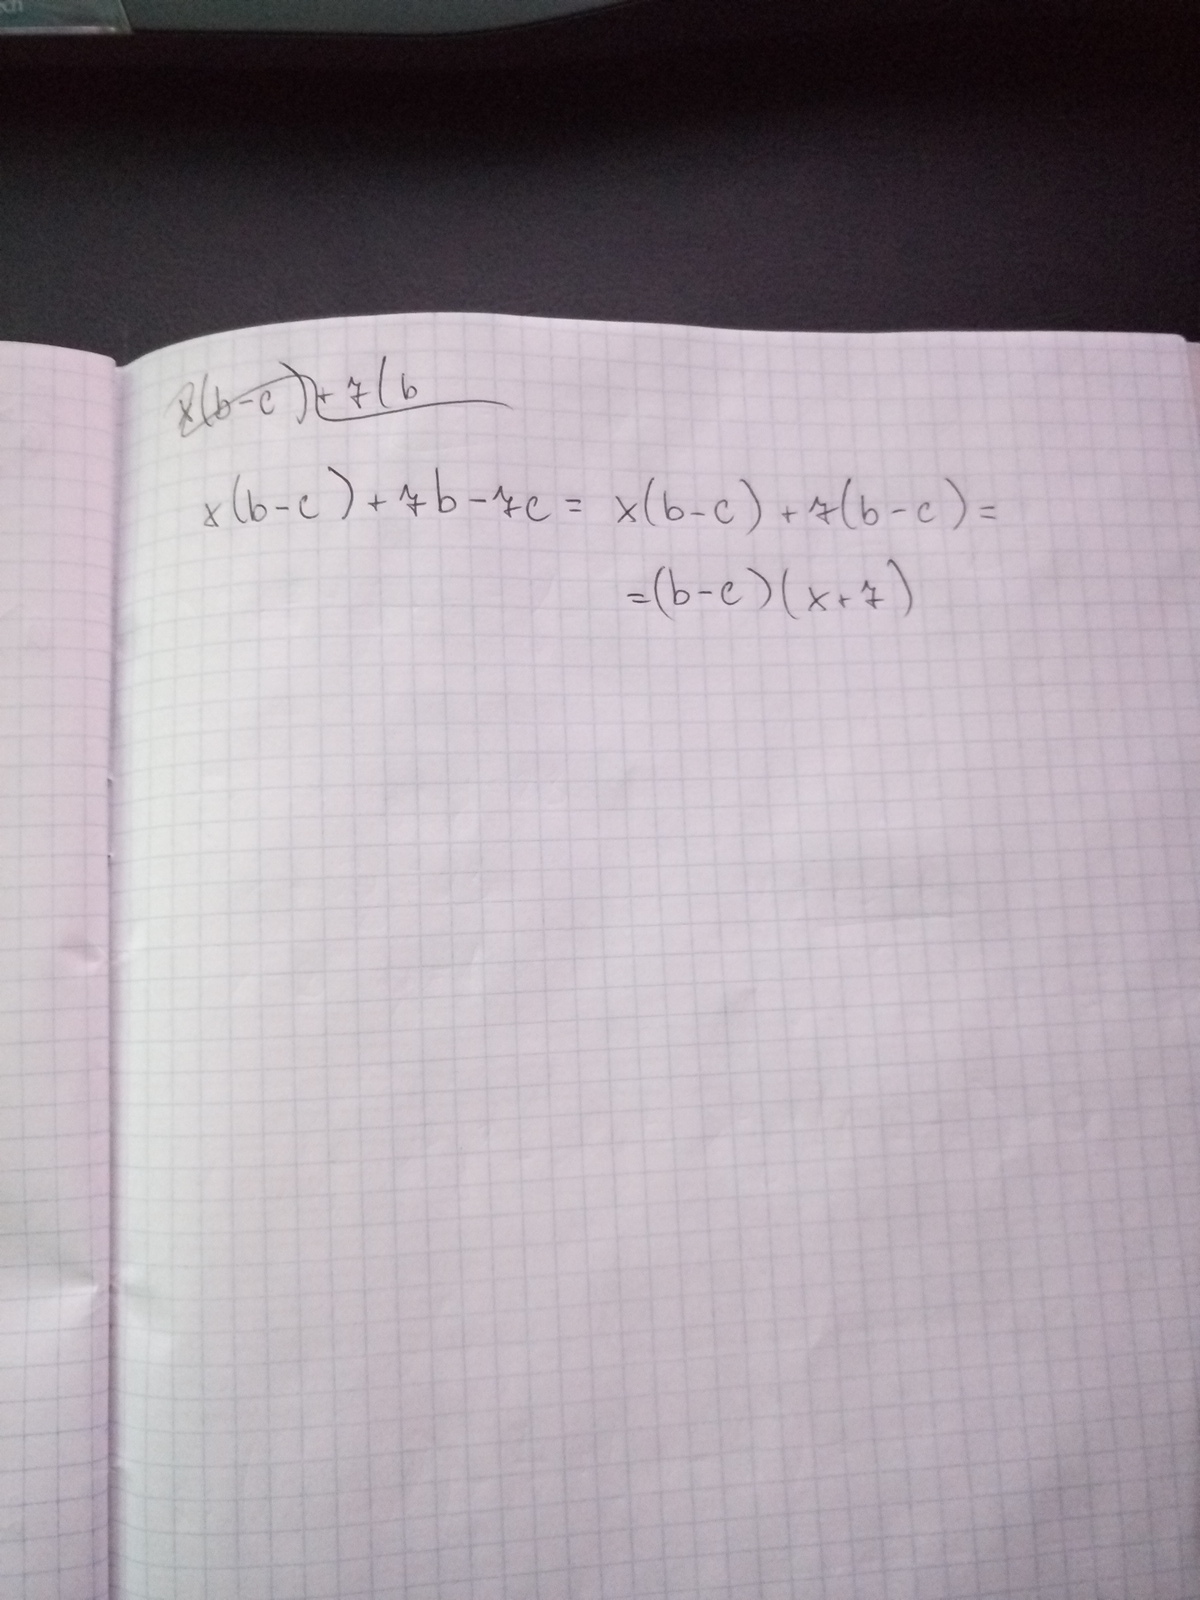 x(b-c)+7(b
x(b-c)+7b-7c = x(b-c)+7(b-c)=
=(b-c)(x+7)